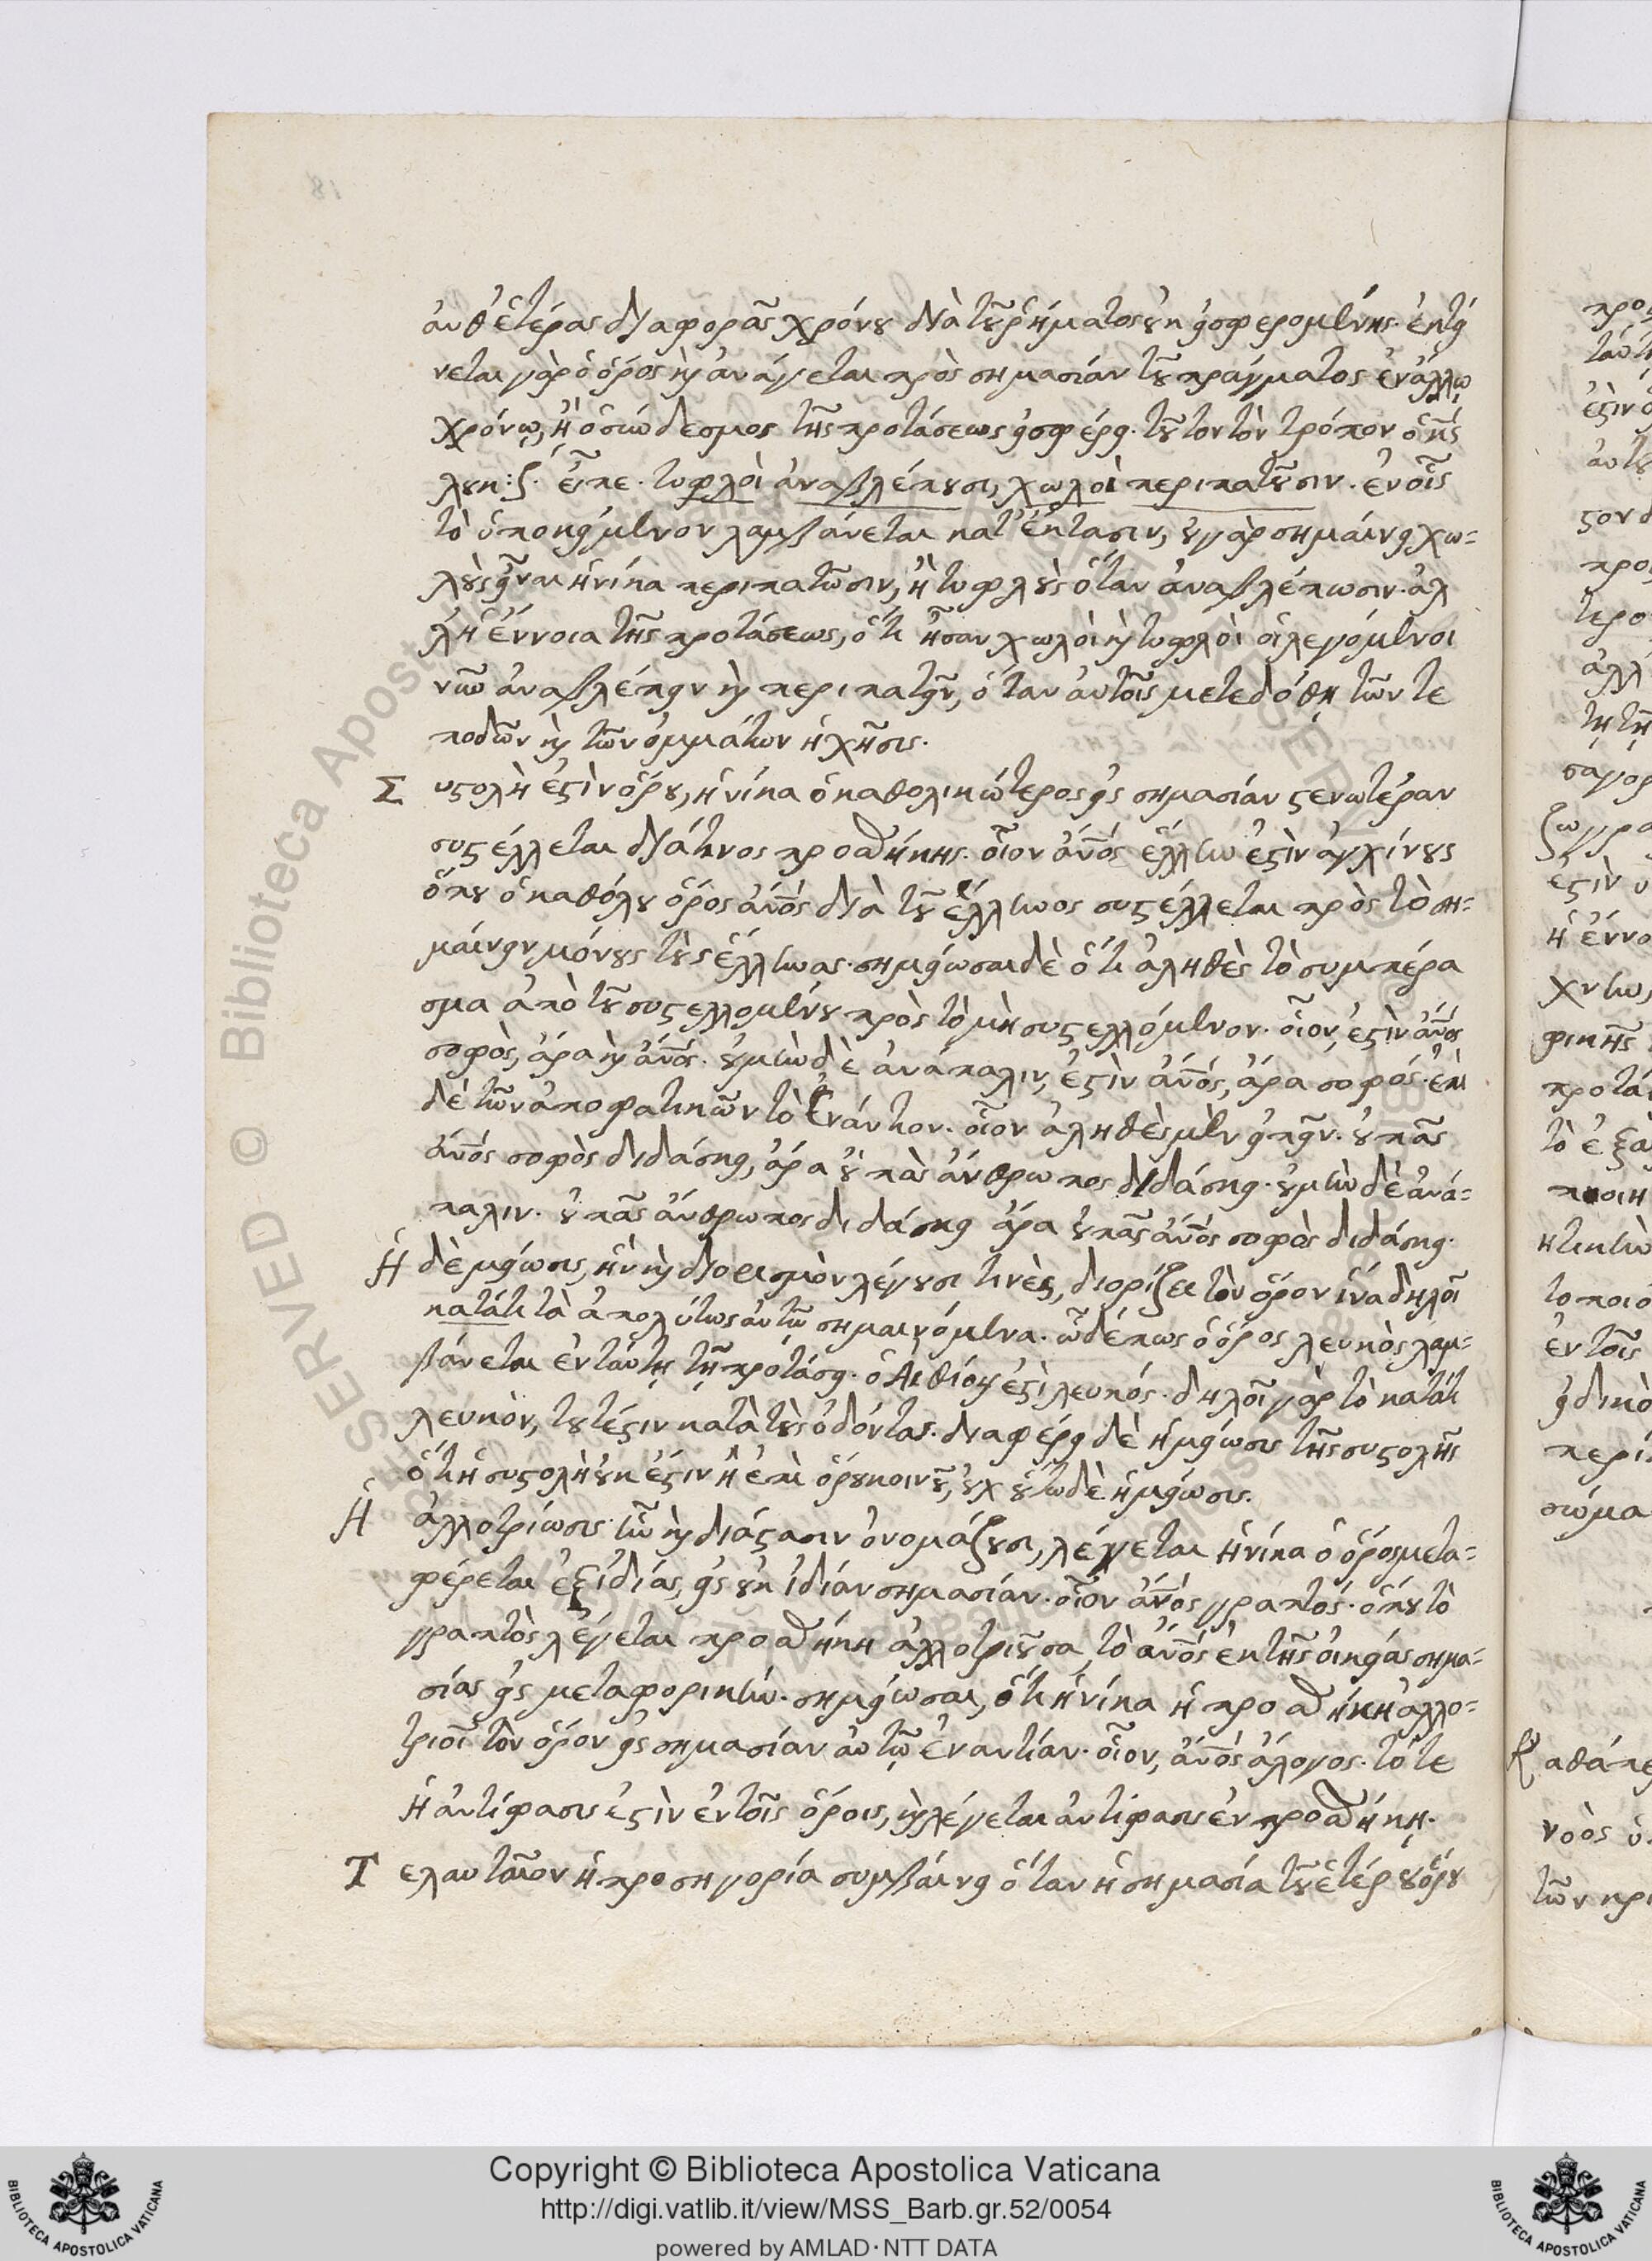 ἀνθ' ἑτέρας διαφορᾶς χρόνου διὰ τοῦ ῥήματος οὐκ εἰσφερομένης. ἐκτεί
νεται γὰρ ὁ ὅρος καὶ ἀνάγεται πρὸς σημασίαν τοῦ πράγματος ἐν ἄλλῳ
χρόνῳ, ἢ ὁ σύνδεσμος τῆς προτάσεως εἰσφέρει. τοῦτον τὸν τρόπον ὁ κ̅ς̅
λουκ: ζ. εἶπε. τυφλοὶ ἀναβλέπουσι, χωλοὶ περιπατοῦσιν. ἐν οἷς
τὸ ὑποκείμενον λαμβάνεται κατ' ἔκτασιν, οὐ γὰρ σημαίνει χω=
λοὺς εἶναι ἡνίκα περιπατῶσιν, ἢ τυφλοὺς ὅταν ἀναβλέπωσιν. ἀλ
λ' ἡ ἔννοια τῆς προτάσεως, ὅτι ἦσαν χωλοὶ καὶ τυφλοὶ οἱ λεγόμενοι
νῦν ἀναβλέπειν καὶ περιπατεῖν, ὅταν αὐτοῖς μετεδόθη τῶν τε
ποδῶν καὶ τῶν ὀμμάτων ἡ χρῆσις.
Συστολὴ ἐστὶν ὅρου, ἡνίκα ὁ καθολικώτερος εἰς σημασίαν στενωτέραν
συστέλλεται διά τινος προσθήκης. οἷον ἄν̅ο̅ς ἕλλην ἐστὶν ἀγχίνους
ὅπου ὁ καθόλου ὅρος ἄν̅ο̅ς διὰ τοῦ ἕλληνος συστέλλεται πρὸς τὸ ση=
μαίνειν μόνους τοὺς ἕλληνας. σημείωσαι δὲ ὅτι ἀληθὲς τὸ συμπέρα
σμα ἀπὸ τοῦ συστελλομένου πρὸς τὸ μὴ συστελλόμενον. οἷον, ἐστὶν ἄν̅ο̅ς
σοφὸς, ἄρα καὶ ἄν̅ο̅ς. οὐ μὴν δὲ ἀνάπαλιν, ἐστὶν ἄν̅ο̅ς, ἄρα σοφός. ἐπὶ
δὲ τῶν ἀποφατικῶν τὸ ἐνάντιον. οἷον ἀληθὲς μὲν εἰπεῖν. οὐ πᾶς
ἄν̅ο̅ς σοφὸς διδάσκει, ἄρα οὐ πᾶς ἄνθρωπος διδάσκει. οὐ μὴν δὲ ἀνά=
παλιν. οὐ πᾶς ἄνθρωπος διδάσκει ἄρα οὐ πᾶς ἄν̅ο̅ς σοφὸς διδάσκει.
Ἡ δὲ μείωσις, ἣν καὶ διορισμὸν λέγουσι τινὲς, διορίζει τὸν ὅρον ἵνα δηλοῖ
κατάτι τὰ ἀπολύτως αὐτῷ σημαινόμενα. ὧδέπως ὁ ὅρος λευκὸς λαμ=
βάνεται ἐν ταύτῃ τῇ προτάσει. ὁ Αἰθίοψ ἐστὶ λευκός. δηλοῖ γὰρ τὸ κατάτι
λευκὸν, τουτέστιν κατὰ τοὺς ὀδόντας. διαφέρει δὲ ἡ μείωσις τῆς συστολῆς
ὅτι ἡ συστολὴ οὐκ ἔστιν ἢ ἐπὶ ὅρου κοινοῦ, οὐχ οὕτω δὲ ἡ μείωσις.
Ἡ ἀλλοτρίωσις. ἣν καὶ διάστασιν ὀνομάζουσι, λέγεται ἡνίκα ὁ ὅρος μετα=
φέρεται ἐξ ἰδίας, εἰς οὐκ ἰδίαν σημασίαν. οἷον ἄν̅ο̅ς γραπτός. ὅπου τὸ
γραπτὸς λέγεται προσθήκη ἀλλοτριοῦσα τὸ ἄν̅ο̅ς ἐκ τῆς οἰκείας σημα=
σίας εἰς μεταφορικήν. σημείωσαι, ὅτι ἡνίκα ἡ προσθήκη ἀλλο=
τριοῖ τὸν ὅρον εἰς σημασίαν αὐτῷ ἐναντίαν. οἷον, ἄν̅ο̅ς ἄλογος. τότε
ἡ ἀντίφασις ἐστὶν ἐν τοῖς ὅροις, καὶ λέγεται ἀντίφασις ἐν προσθήκῃ.
Τελευταῖον ἡ προσηγορία συμβαίνει ὅταν ἡ σημασία τοῦ ἑτέρου ὅρου
Copyright © Biblioteca Apostolica Vaticana
http://digi.vatlib.it/view/MSS_Barb.gr.52/0054
powered by AMLAD·NTT DATA